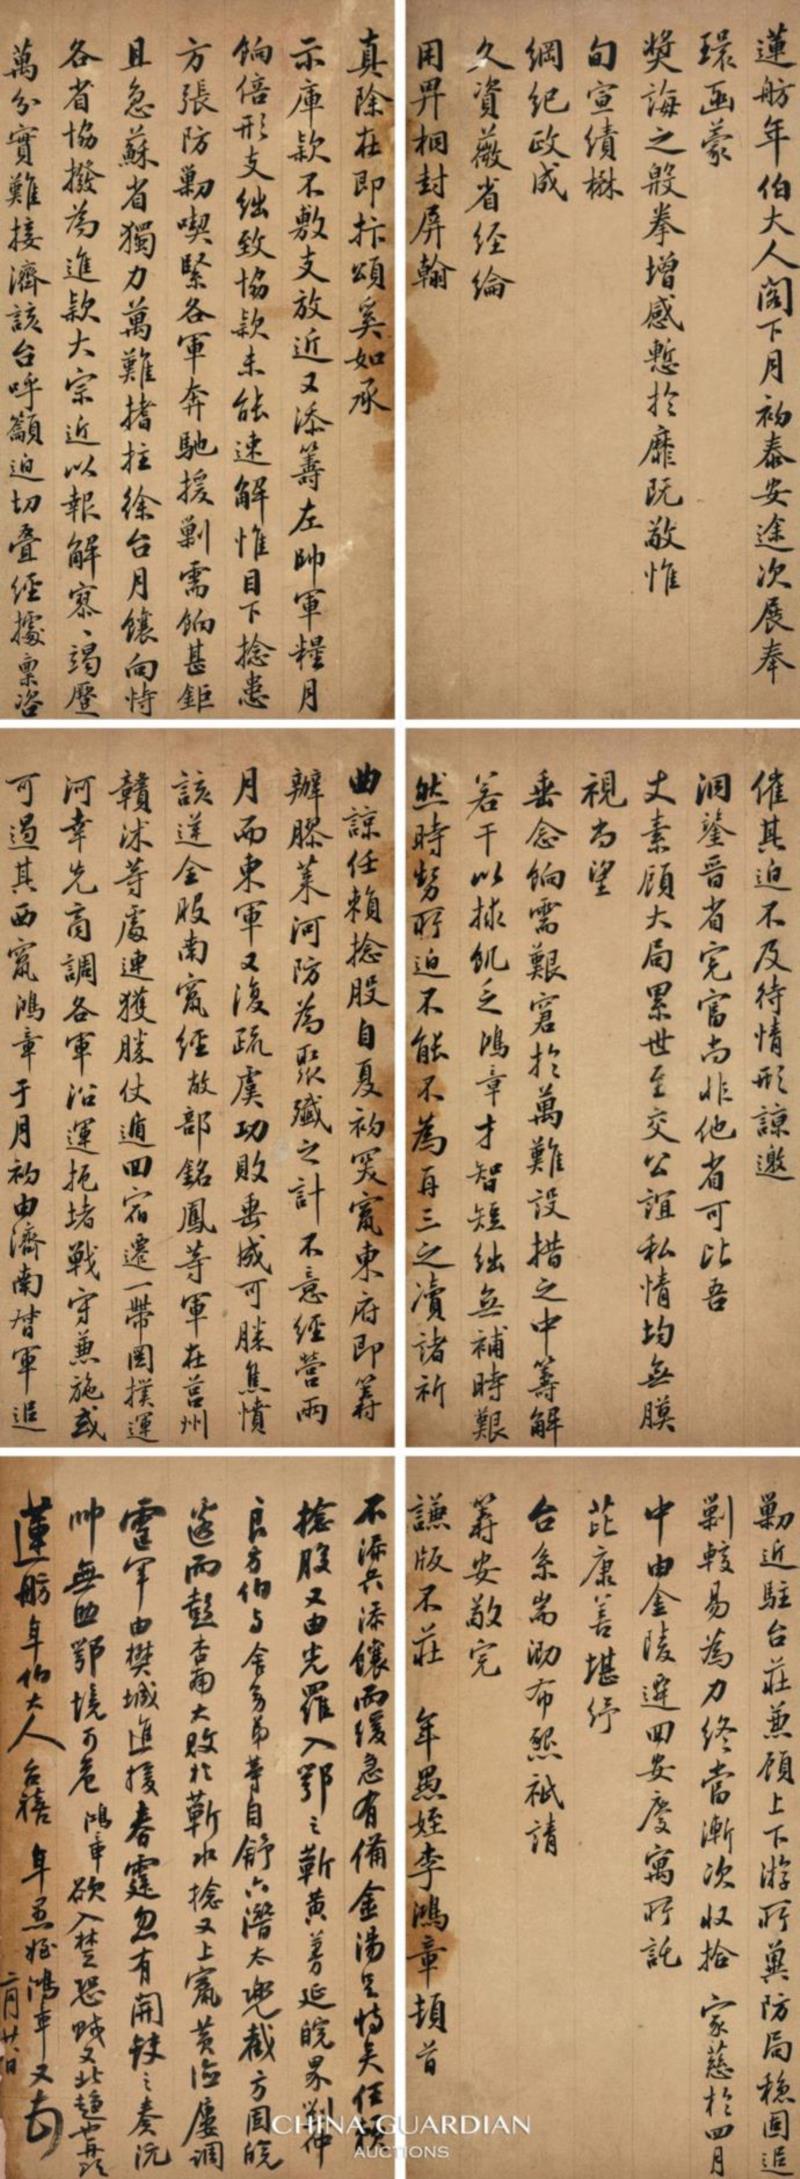 蓮舫年伯大人閣下月初泰安途次展奉
環函蒙
獎誨之殷拳增感慙於靡既敬惟
旬宣績楙
綱紀政成
久資薇省經綸
用畀桐封屏翰
真除在即抃頌奚如承
示庫款不敷支放近又添籌左帥軍糧月
餉倍形支絀致協款未能速解惟目下捻患
方張防剿喫緊各軍奔馳援剿需餉甚鉅
且急蘇省獨力萬難搘拄徐台月饟向恃
各省協撥為進款大宗近以報解寥寥竭蹷
萬分實難接濟該台呼籲迫切疊經據稟咨
催其迫不及待情形諒邀
洞鑒晉省完富尚非他省可比吾
丈素顧大局累世至交公誼私情均無膜
視尚望
垂念餉需艱窘於萬難設措之中籌解
若干以拯飢乏鴻章才智短絀無補時艱
然時勢所迫不能不為再三之瀆諸祈
曲諒任賴捻股自夏初竄東府即籌
辦膠萊河防為聚殲之計不意經營兩
月而東軍又復疏虞功敗垂成可勝焦憤
該逆全股南竄經敝部銘鳳等軍在莒州
贛沭等處連獲勝仗遁回宿遷一帶圖撲運
河幸先商調各軍沿運扼堵戰守兼施或
可遏其西竄鴻章于月初由濟南督軍追
剿近駐台莊兼顧上下游所冀防局穩固追
剿較易為力終當漸次收拾 家慈於四月
中由金陵還回安慶寓所託
芘康善堪紓
台系耑泐布懇祇請
籌安敬完
謙版不莊 年愚姪李鴻章頓首
不添兵添饟而緩急有備金湯足恃矣任賴
捻股又由光羅入鄂之蘄黃蔓延皖界劉仲
良方伯與舍弟等自舒六潛太兜截方固皖
邊而彭杏南大敗於蘄水捻又上竄黃德屢調
霆軍由樊城進援春霆忽有開缺之奏沅
帥無助鄂境可危鴻章欲入楚恐賊又北趨
蓮舫年伯大人台禧 年愚姪鴻章又頓
二月廿八日
CHINA GUARDIAN
AUCTIONS